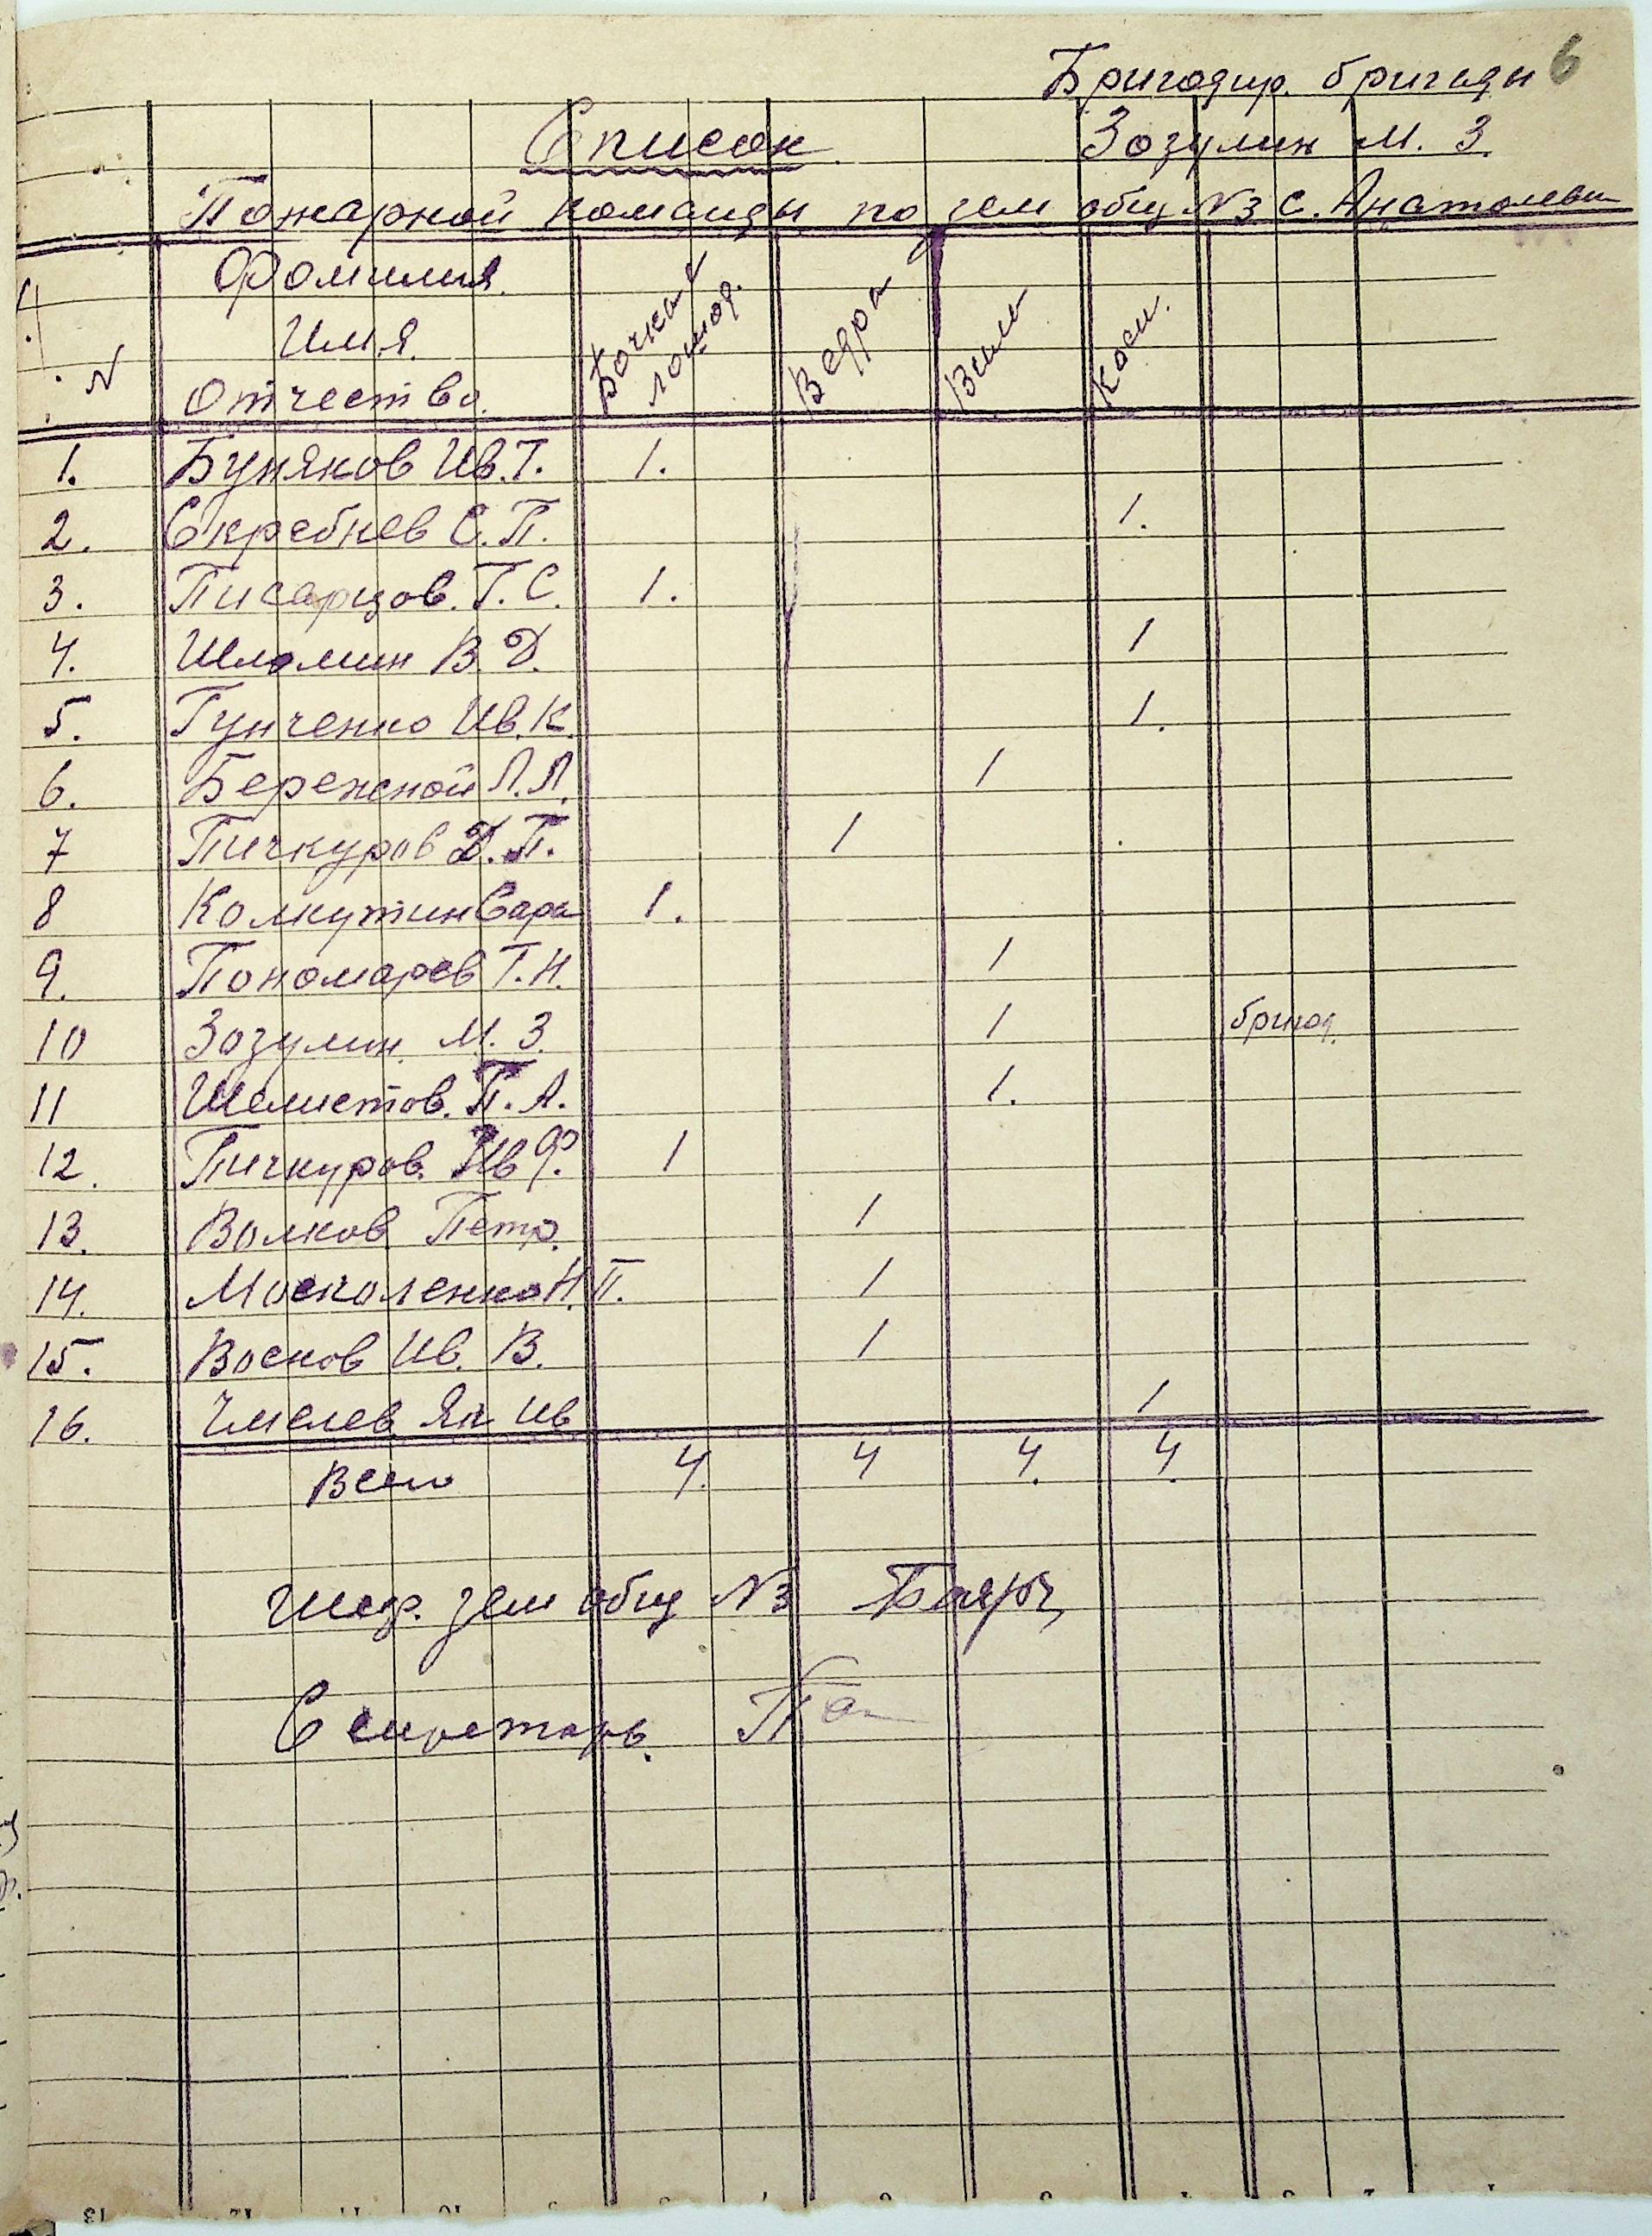 6
Бригадир. бригады
Зозулин М. З.
Список
Пожарной команды по зем общ. №3 с. Анатолевки
№
Фамилия.
Имя.
Отчество.
Бочка и лошад.
Ведра
Вилы
Косы.
1. Буняков Ив. Т. 1.
2. Скребнев С. П. 1.
3. Писарцов. Т. С. 1.
4. Шломин В. Д. 1
5. Гунченко Ив. К. 1.
6. Бережной Л. Л. 1
7 Пичкуров Д. П. 1
8 Колкутин Сара 1.
9. Пономарев Т. Н. 1
10 Зозулин. М. З. 1 бригад.
11 Шелистов. П. А. 1.
12. Пичкуров. Ив Ф. 1
13. Волков Петр. 1
14. Москоленко Н. П. 1
15. Восков Ив. В. 1
16. Чмелев Як Ив 1
Всего 4. 4 4. 4.
зем общ №3
Секретарь.
13 12 11 10